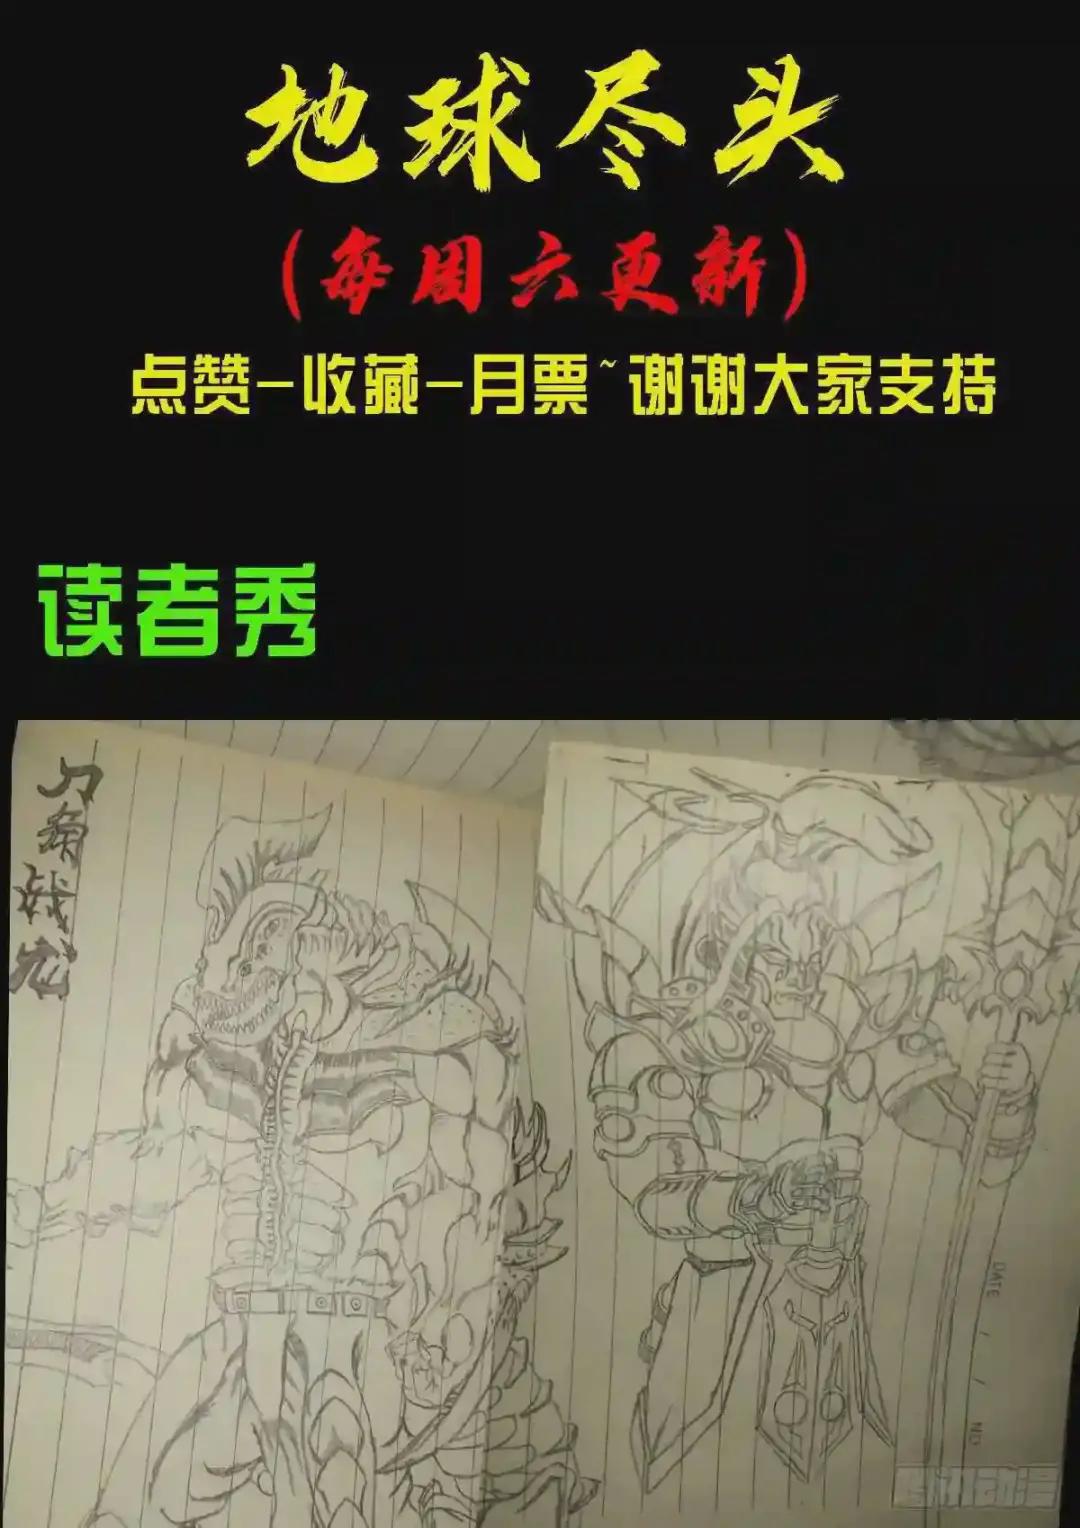 地球尽头
(每周六更新)
点赞-收藏-月票~谢谢大家支持
读者秀
刀角战龙
DATE / /
NO